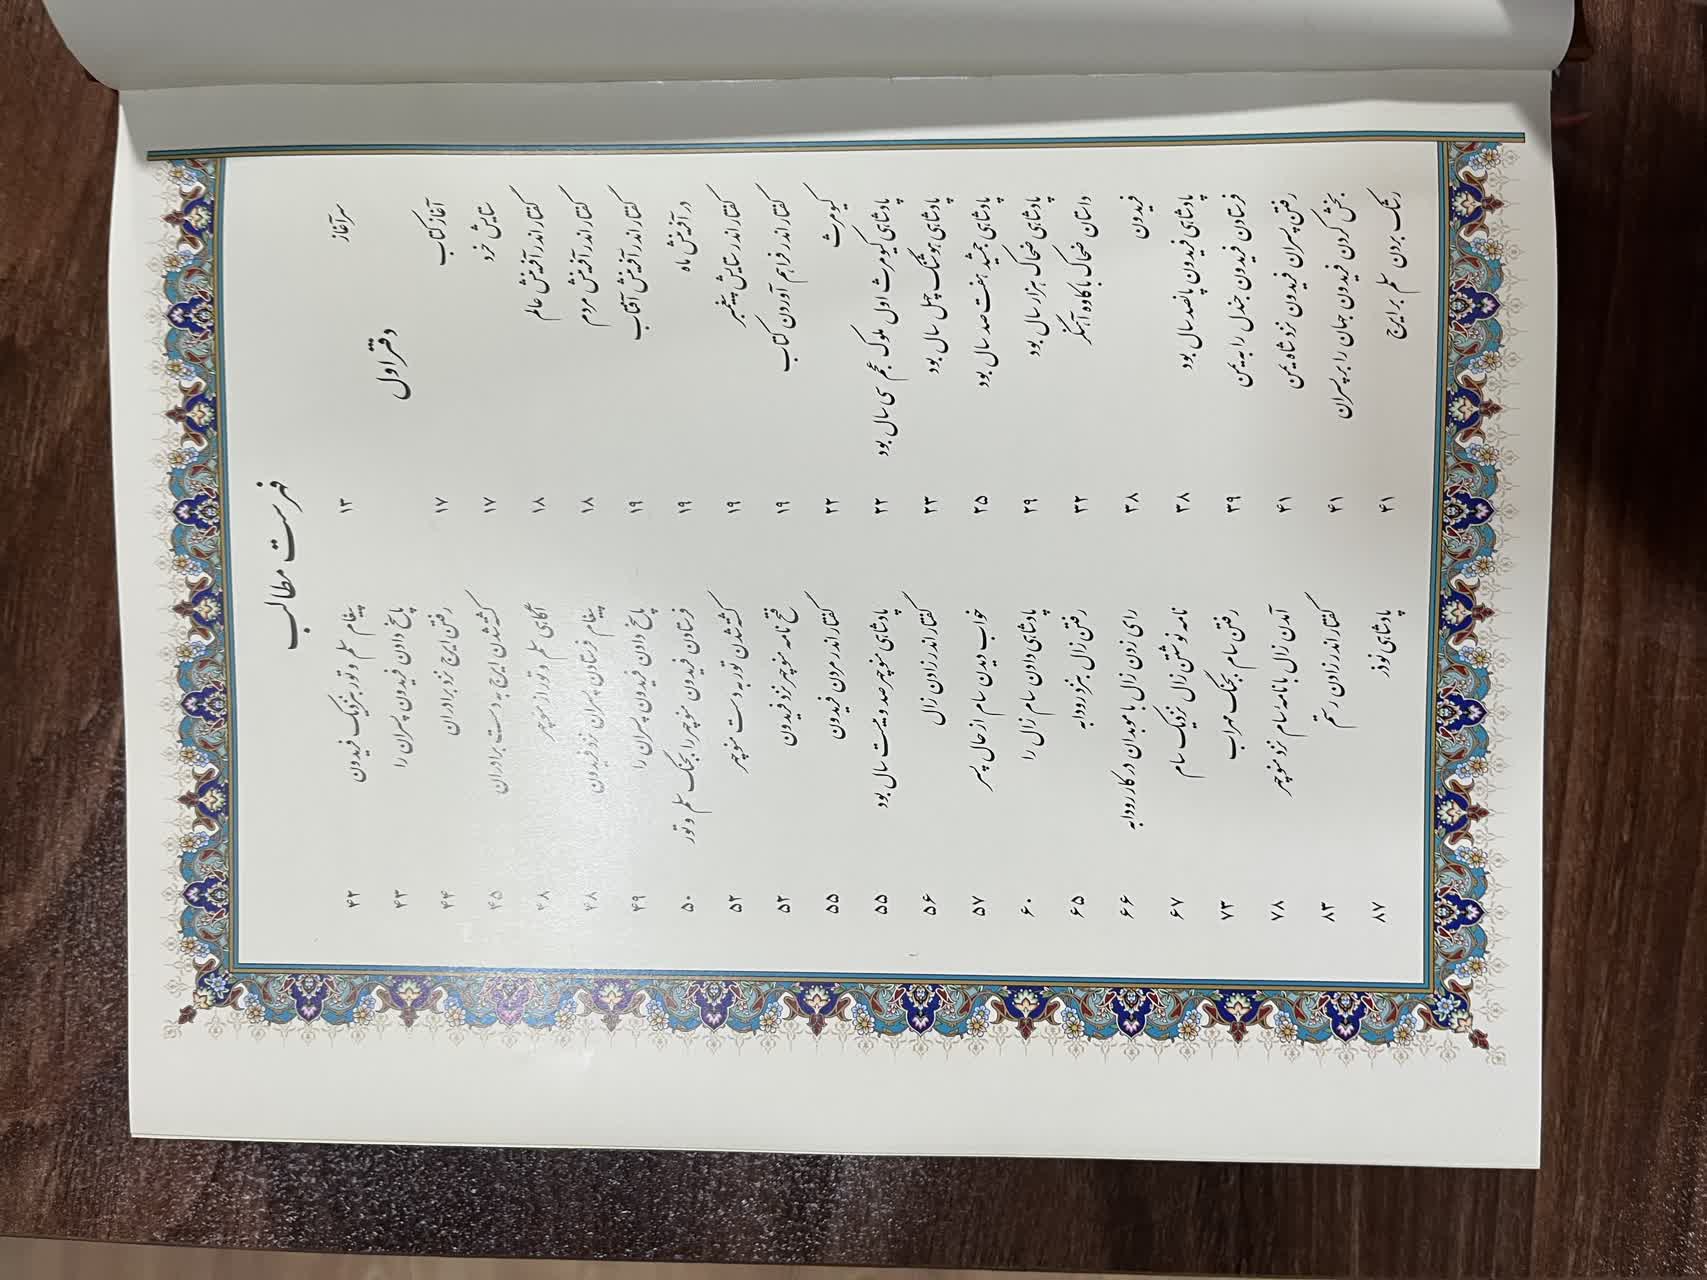 فهرست مطالب
سرآغاز ۱۳
دفتر اول
آغاز کتاب ۱۷
ستایش خرد ۱۷
گفتار اندر آفرینش عالم ۱۸
گفتار اندر آفرینش مردم ۱۸
گفتار اندر آفرینش آفتاب ۱۹
در آفرینش ماه ۱۹
گفتار اندر ستایش پیغمبر ۱۹
گفتار اندر فراهم آوردن کتاب ۱۹
کیومرث ۲۲
پادشاهی کیومرث اول ملوک عجم سی سال بود ۲۲
پادشاهی هوشنگ چهل سال بود ۲۳
پادشاهی جمشید هفت صد سال بود ۲۵
پادشاهی ضحاک هزار سال بود ۲۹
داستان ضحاک با کاوه آهنگر ۳۲
فریدون ۳۸
پادشاهی فریدون پانصد سال بود ۳۸
فرستادن فریدون جندل را به یمن ۳۹
رفتن پسران فریدون نزد شاه یمن ۴۱
بخش کردن فریدون جهان را بر پسران ۴۱
رشک بردن سلم بر ایرج ۴۱
پیغام سلم و تور به نزدیک فریدون ۴۲
پاسخ دادن فریدون پسران را ۴۳
رفتن ایرج نزد برادران ۴۴
کشته شدن ایرج به دست برادران ۴۵
آگاهی سلم و تور از منوچهر ۴۸
پیغام فرستادن پسران نزد فریدون ۴۸
پاسخ دادن فریدون پسران را ۴۹
فرستادن فریدون منوچهر را به جنگ سلم و تور ۵۰
کشته شدن تور به دست منوچهر ۵۲
فتح نامه منوچهر نزد فریدون ۵۲
گفتار اندر مردن فریدون ۵۵
پادشاهی منوچهر صد و بیست سال بود ۵۵
گفتار اندر زادن زال ۵۶
خواب دیدن سام از حال پسر ۵۷
پادشاهی دادن سام زال را ۶۰
رفتن زال به نزد رودابه ۶۵
رای زدن زال با موبدان در کار رودابه ۶۶
نامه نوشتن زال نزدیک سام ۶۷
رفتن سام به جنگ مهراب ۷۳
آمدن زال با نامه سام نزد منوچهر ۷۸
گفتار اندر زادن رستم ۸۳
پادشاهی نوذر ۸۷